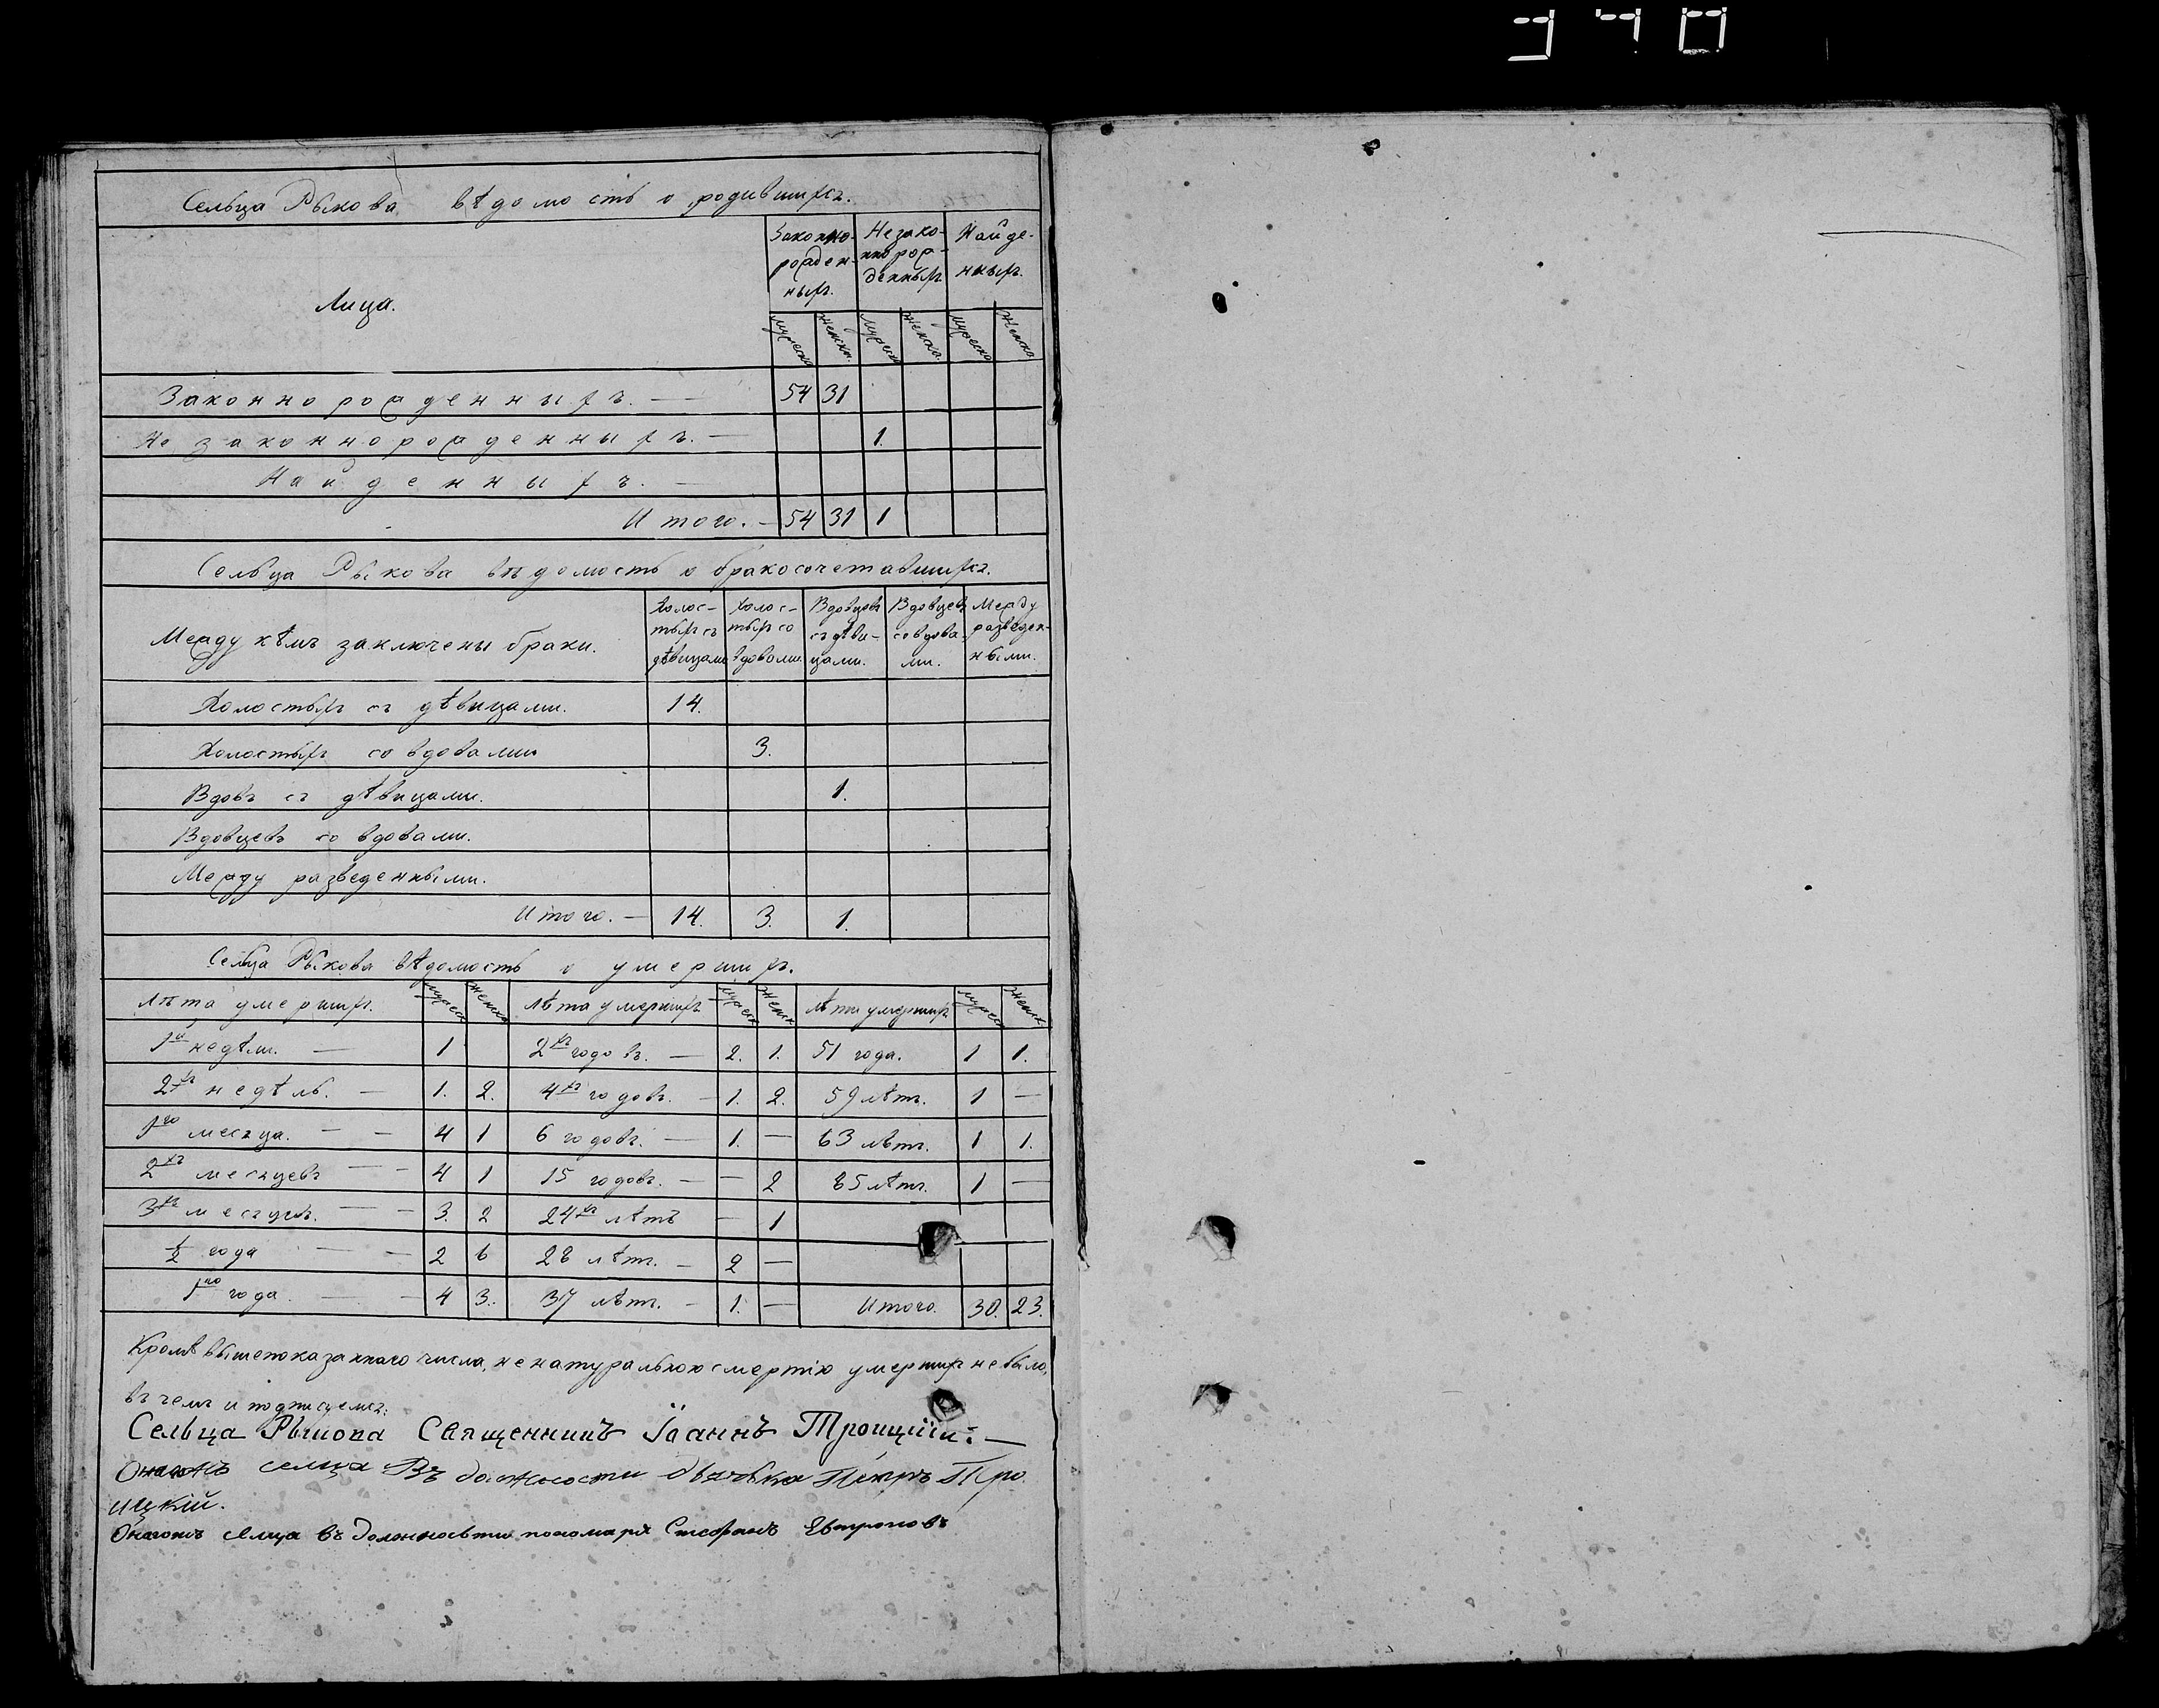 340
Сельца Рыкова вѣдомость о родившихся.
Лица. | Законно-рожден-ныхъ. | Незако-ннорож-денныхъ | Найде-нныхъ.
мужеска | женска. | мужеска | женска. | мужеска | женска
Законнорожденныхъ. — | 54 | 31
Не законнорожденныхъ. — | 1.
Найденныхъ. —
Итого. — | 54 | 31 | 1
Сельца Рыкова вѣдомость о бракосочетавшихся.
Между кѣмъ заключены браки. | Холос-тыхъ съ дѣвицами | Холос-тыхъ со вдовами. | Вдовцовъ съ дѣви-цами. | Вдовцевъ со вдова-ми. | Между разведен-ными.
Холостыхъ съ дѣвицами. | 14.
Холостыхъ со вдовами | 3.
Вдовъ съ дѣвицами. | 1.
Вдовцевъ со вдовами.
Между разведенными.
Итого. — | 14. | 3. | 1.
Сельца Рыкова вѣдомость о умершихъ.
Лѣта умершихъ. | мужеска | женска | Лѣта умершихъ | мужеска | женска | Лѣта умершихъ | мужеска | женска
1й недѣли. — | 1 | | 2хъ годовъ. — | 2. | 1. | 51 года. | 1 | 1.
2хъ недѣль. — | 1. | 2. | 4хъ годовъ. — | 1. | 2. | 59 лѣтъ. | 1 | —
1го месяца. — — | 4 | 1 | 6 годовъ. — | 1. | — | 63 лѣтъ. | 1 | 1.
2хъ месяцевъ — — | 4 | 1 | 15 годовъ. — | — | 2 | 85 лѣтъ. | 1 | —
3хъ месяцевъ. — — | 3. | 2 | 24хъ лѣтъ | — | 1
½ года — — | 2 | 6 | 28 лѣтъ. — | 2 | —
1го года. — — | 4 | 3. | 37 лѣтъ. — | 1. | — | Итого. | 30. | 23.
Кромѣ вышепоказаннаго числа, ненатуральною смертію умершихъ небыло,
въ чемъ и подписуемся:
Сельца Рыкова Священникъ Іоаннъ Троицкій: —
Онагожъ селца Въ должности дьячька Петръ Тро
ицкій.
Онагожъ селца въ должности пономаря Стефанъ Евтроповъ